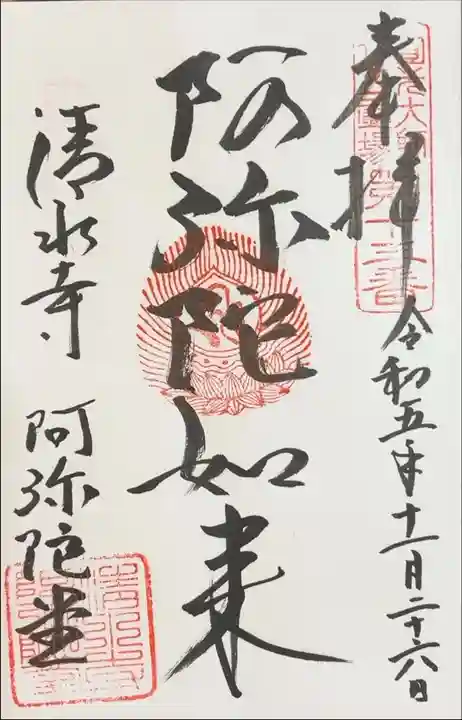 奉拝
令和五年十一月二十六日
阿弥陀如来
清水寺
阿弥陀堂
第十三番